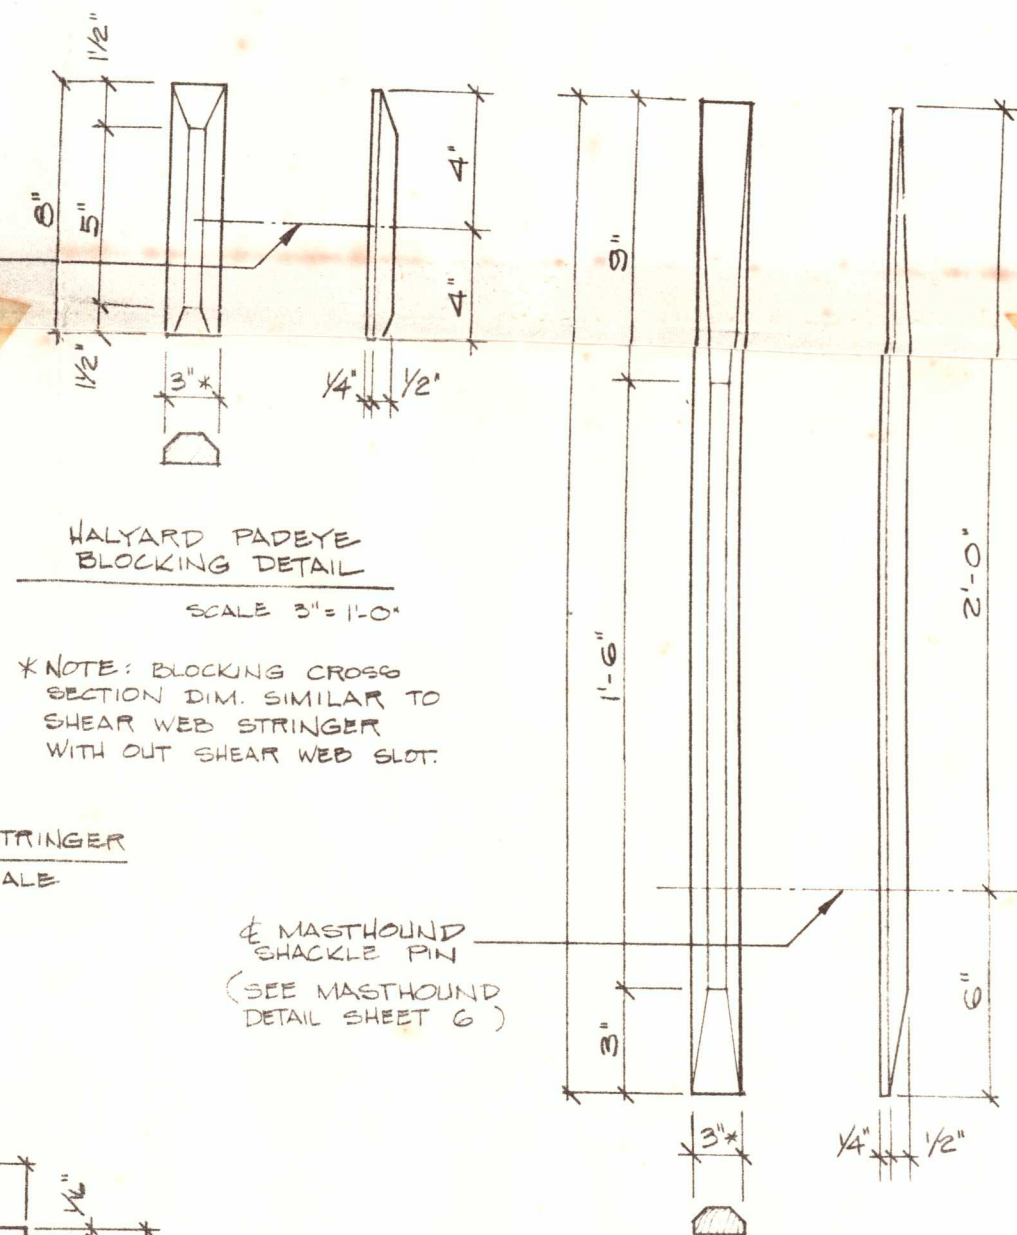 1 1/2"
8"
5"
1 1/2"
4"
4"
3"*
1/4"
1/2"
HALYARD PADEYE
BLOCKING DETAIL
SCALE 3" = 1'-0"
*NOTE: BLOCKING CROSS
SECTION DIM. SIMILAR TO
SHEAR WEB STRINGER
WITH OUT SHEAR WEB SLOT.
TRINGER
ALE
9"
1'-6"
3"
2'-0"
6"
℄ MASTHOUND
SHACKLE PIN
(SEE MASTHOUND
DETAIL SHEET 6)
3"*
1/4"
1/2"